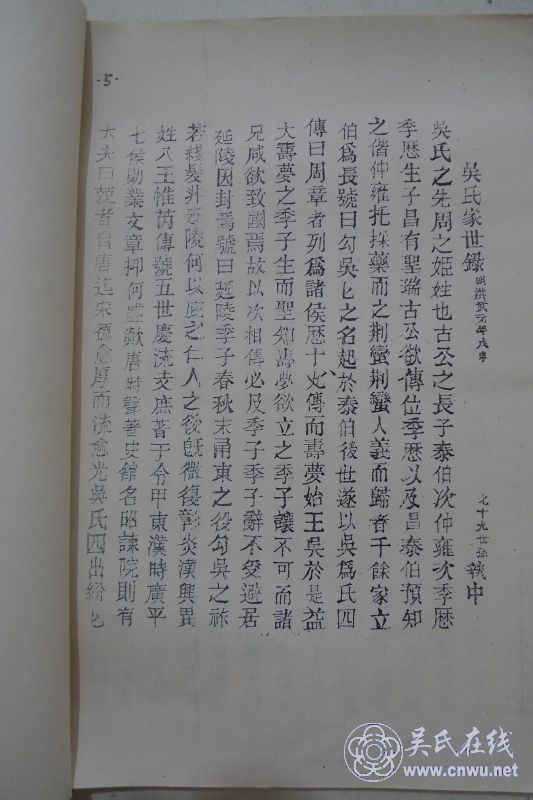 ·5·
吳氏家世錄 明洪武元年戊申 七十九世孫 執中
吳氏之先周之姬姓也古公之長子泰伯次仲雍次季歷
季歷生子昌有聖瑞古公欲傳位季歷以及昌泰伯預知
之偕仲雍托採藥而之荆蠻荆蠻人義而歸者千餘家立
伯爲長號曰勾吳匕之名起於泰伯後世遂以吳爲氏四
傳曰周章者列爲諸侯歷十九傳而壽夢始王吳於是益
大壽夢之季子生而聖知壽夢欲立之季子讓不可而諸
兄咸欲致國焉故以次相傳必及季子季子辭不受避居
延陵因封焉號曰延陵季子春秋末甬東之後勾吳之祚
若綫髮非延陵何以庇之仁人之後旣微復彰炎漢興異
姓八王惟芮傳號五世慶流支庶著于令甲東漢時廣平
七侯勛業文章抑何盛歟唐時聲著史舘名昭諫院則有
大夫曰兢者自唐迄宋德愈厚而流愈光吳氏四出紛匕
吴氏在线
www.cnwu.net